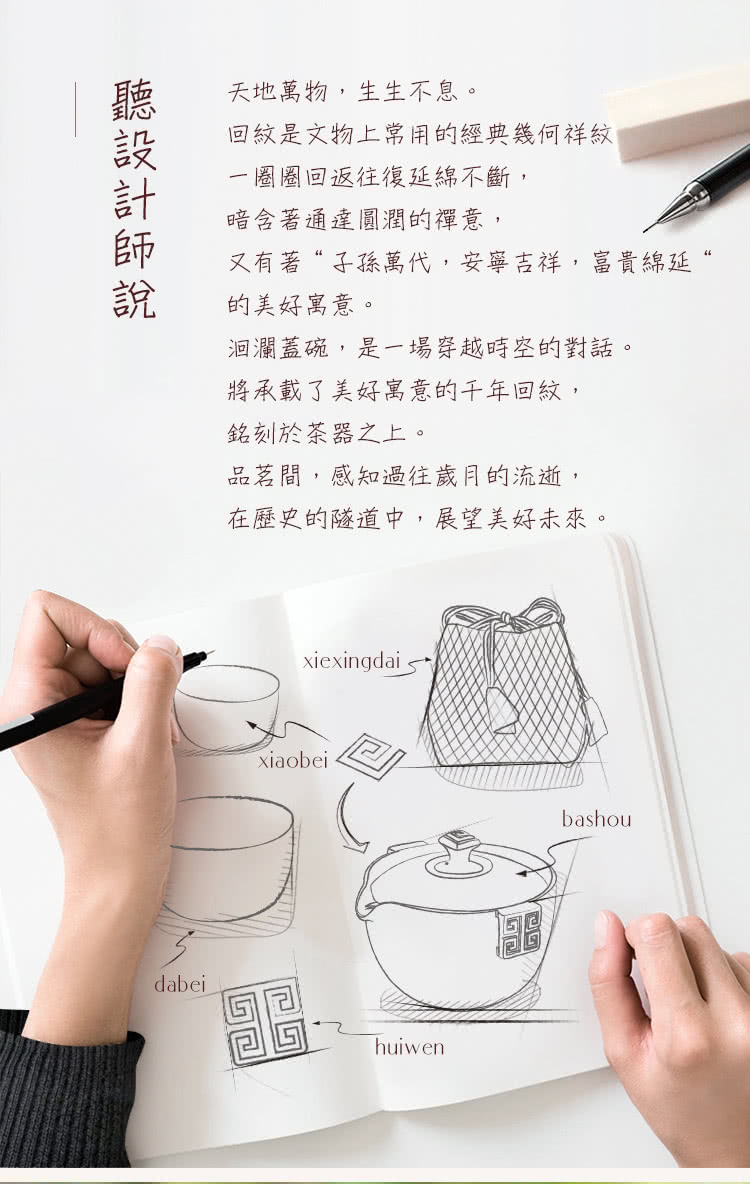 聽設計師說
天地萬物，生生不息。
回紋是文物上常用的經典幾何祥紋
一圈圈回返往復延綿不斷，
暗含著通達圓潤的禪意，
又有著“子孫萬代，安寧吉祥，富貴綿延“
的美好寓意。
洄瀾蓋碗，是一場穿越時空的對話。
將承載了美好寓意的千年回紋，
銘刻於茶器之上。
品茗間，感知過往歲月的流逝，
在歷史的隧道中，展望美好未來。
xiexingdai
xiaobei
bashou
dabei
huiwen